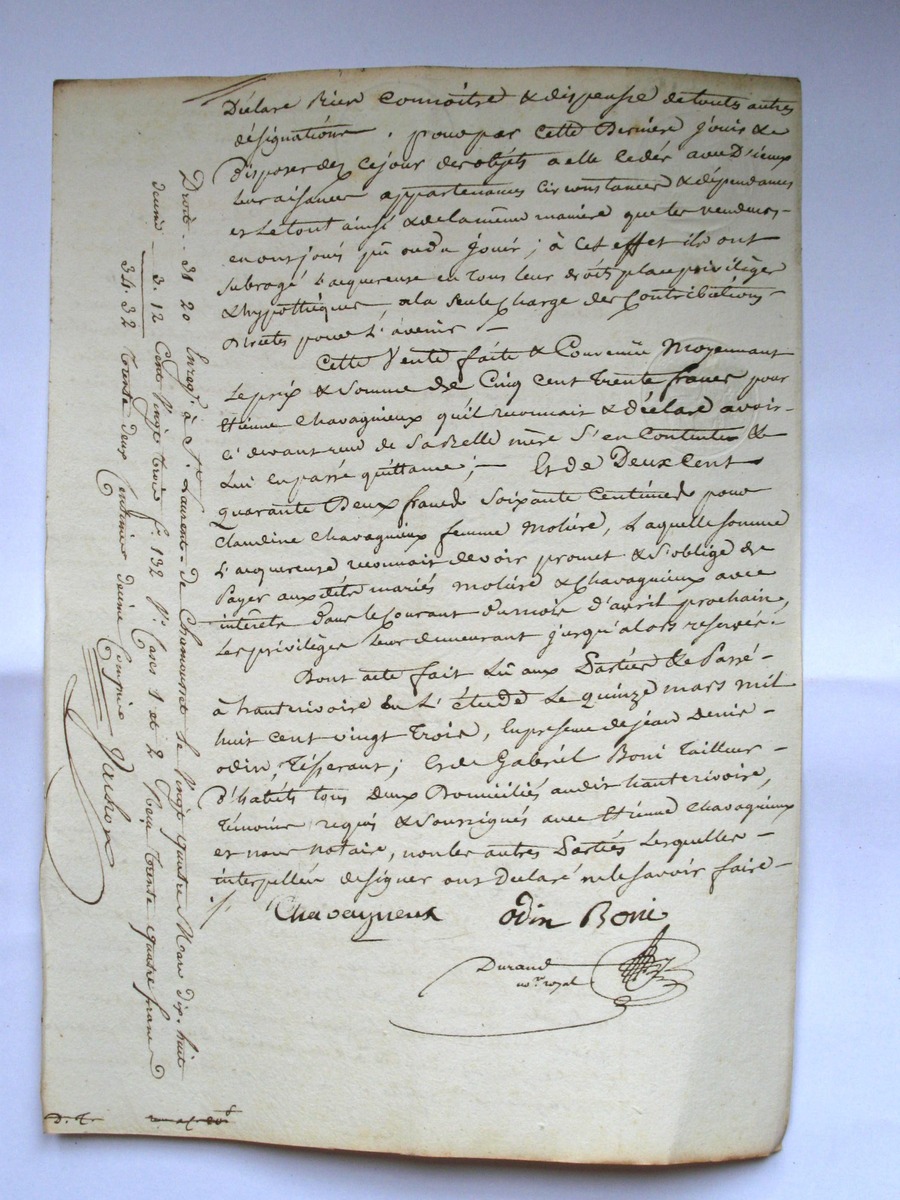 Déclare Rien Connoitre & dispensée de touts autres
désignations. pour par Cette Derniere Jouir &
Disposer dez Cejour des objets a elle Cedés avec D'iceux
leur aisances appartenances Circonstances & dépendances
et Le tout ainsi & de la même maniere que les vendeurs
en ont joui pû ou du Jouir; à Cet effet ils ont
subrogé L'acquereuse en tous leur droits place privilèges
& hypothèques, a la seule Charge des Contributions
Directes pour L'avenir –
Cette Vente faite & Convenüe Moyennant
Le prix & Somme de Cinq Cent trente francs pour
Etienne Chavagnieux qu'il reconnais & déclare avoir
Ci devant reçu de Sa Belle mère S'en Contente &
Lui en passé quittance; – Et de Deux Cent
quarante Deux francs Soixante Centimes pour
Claudine Chavagnieux femme Moliére, Laquelle somme
L'acquereuse reconnais devoir promet & S'oblige de
Payer aux dits mariés Moliére & Chavagnieux avec
intérêts dans le Courant du mois d'avril prochain,
Les privilèges Leur demeurant jusqu'alors reservés.
Dont acte fait Lû aux Parties & Passé
à hauterivoire En L'étude Le quinze mars mil
huit cent vingt trois, En presence de jean Denis
odin, Tisserant; Et de Gabriël Boni Tailleur
D'habits tous Deux Domiciliés audit hauterivoire,
Témoins requis & Soussignés avec Etienne Chavagnieux
et nous Notaire, non les autres Parties Lesquelles
interpellées de signer ont Déclaré ne le savoir faire
Chavagneux odin Boni
Durand
no.re royal
Droits . 31 20 Enreg.é à S.t Laurent de Chamousset le Vingt quatre Mars dix huit
Cent Vingt trois f.o 132 V.o Cases 1 et 2 Reçu trente quatre francs
decime 3. 12
34. 32 trente deux Centimes decime Compris